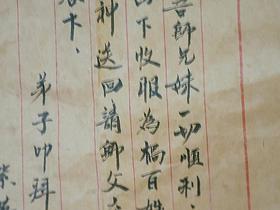 吾師兄妹一切順利、
下收服為禍百姓
神送回請師父
卡、
弟子叩拜
紫